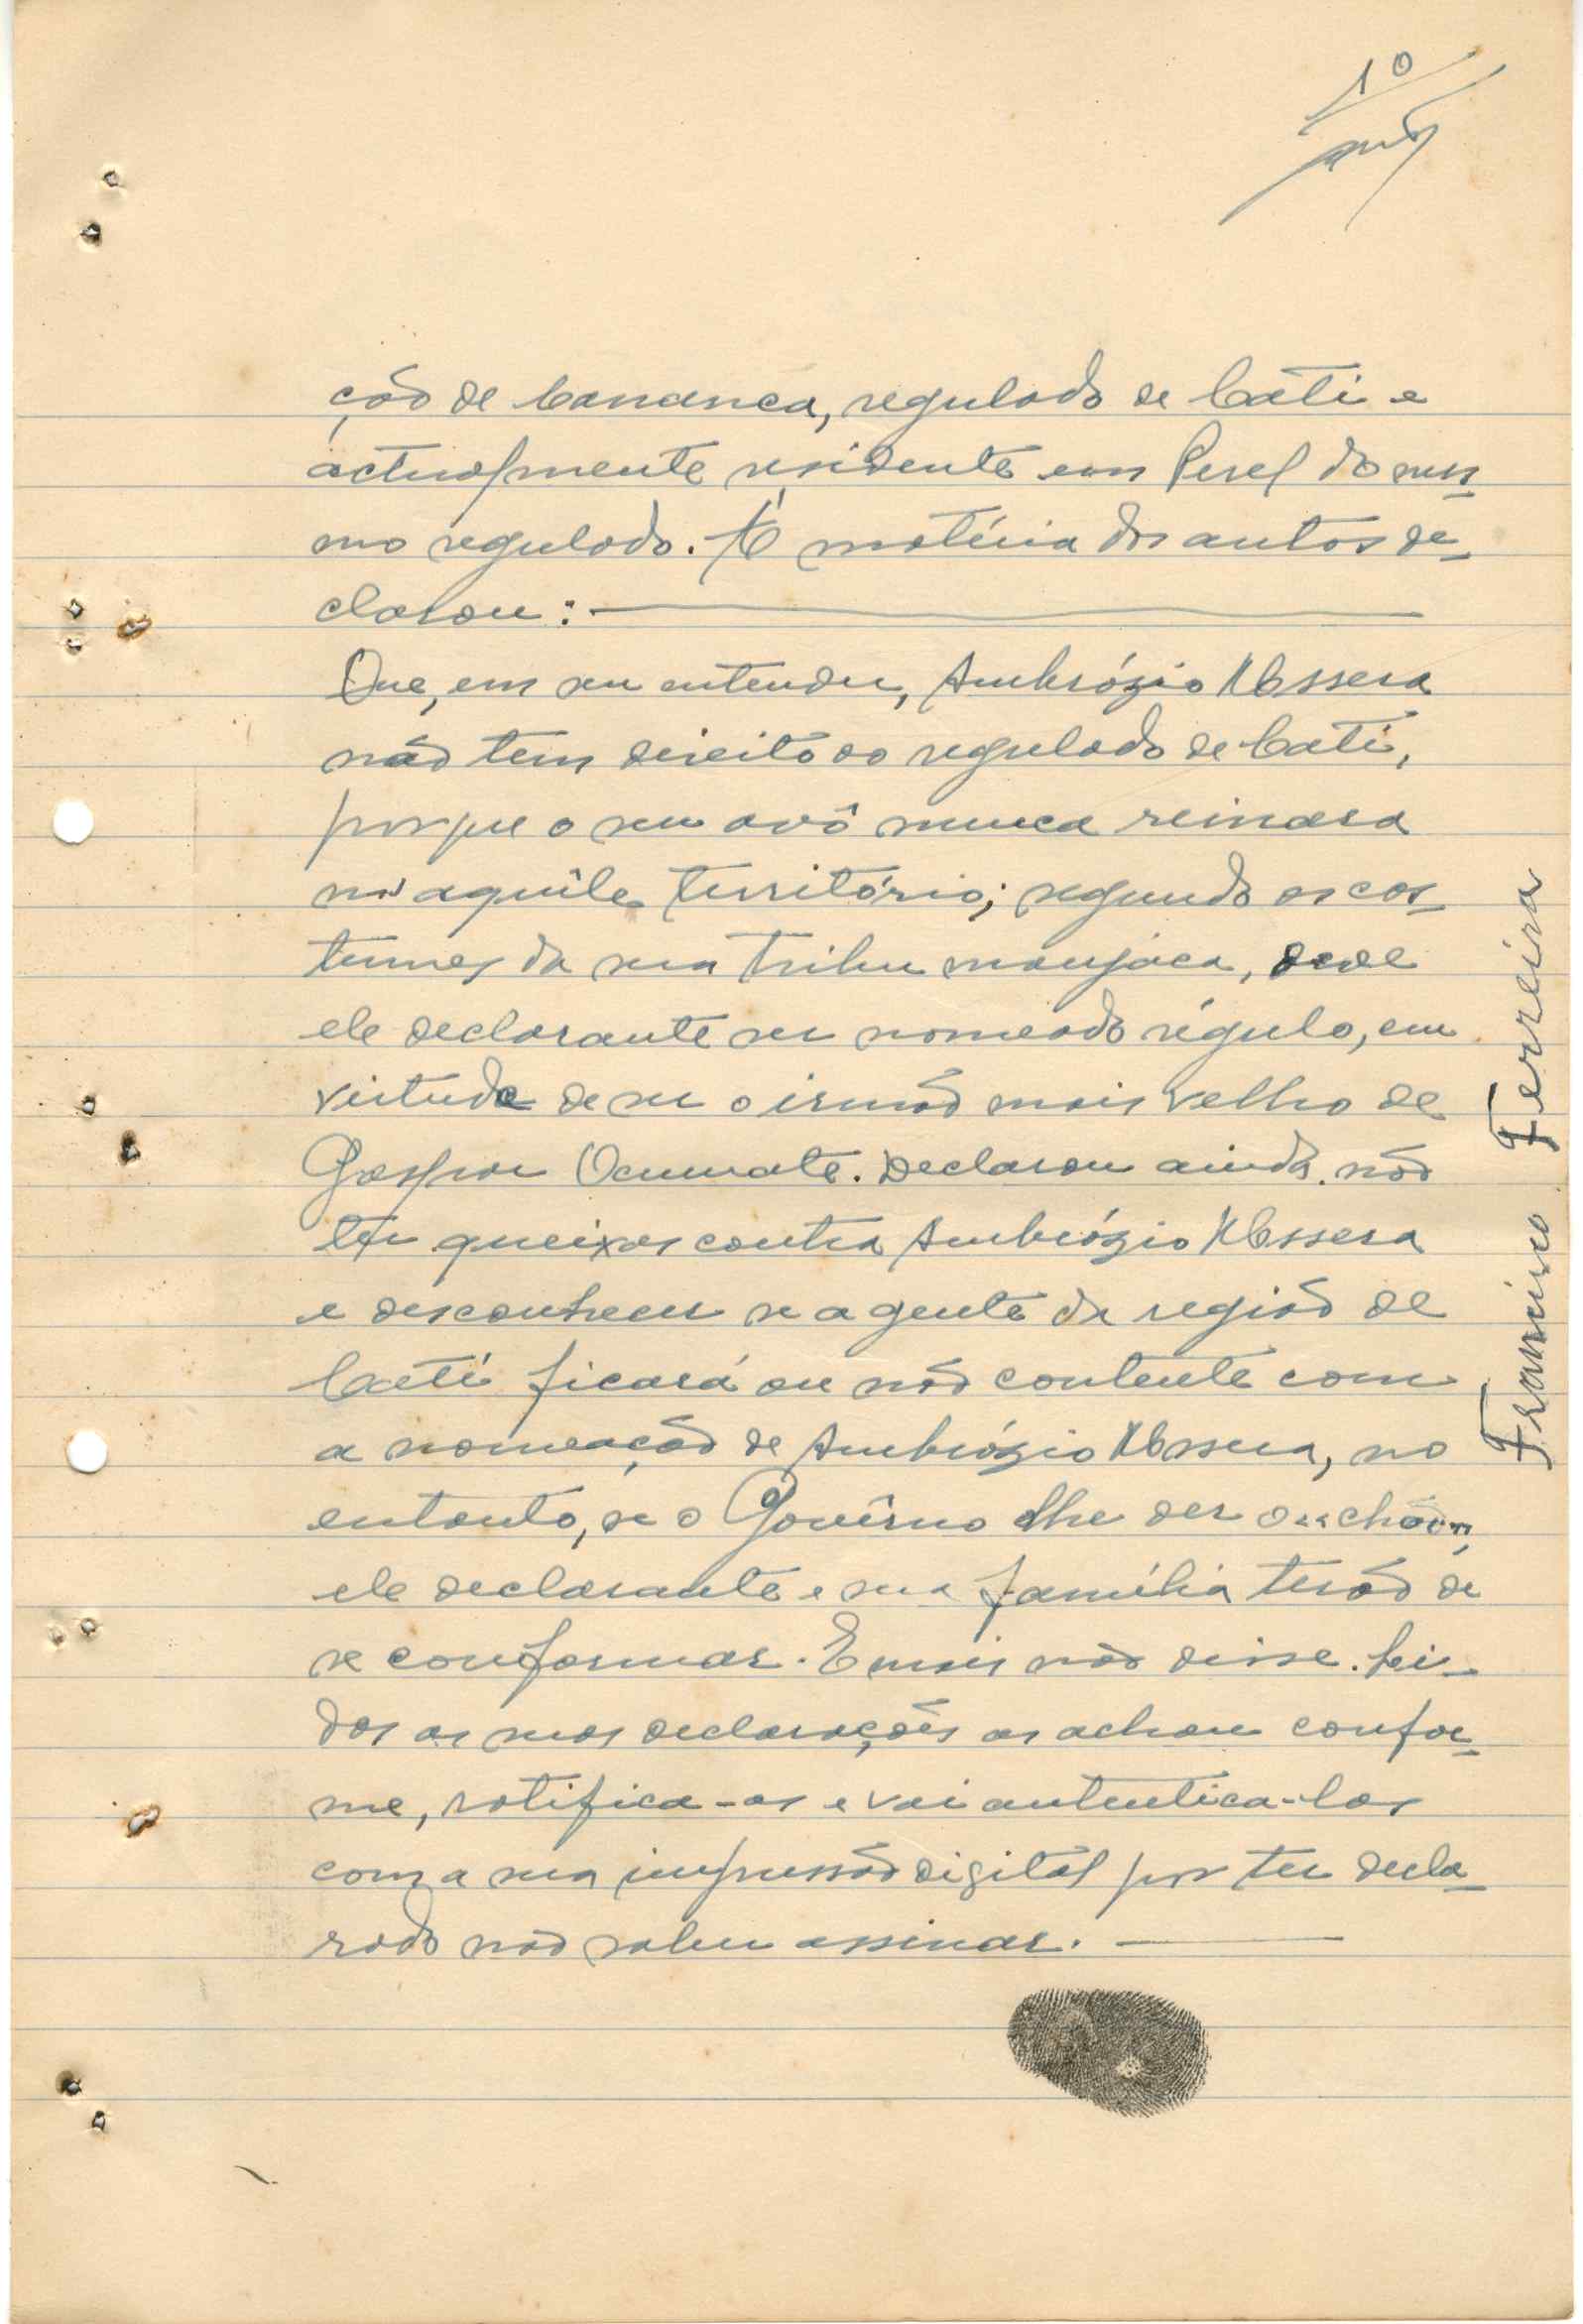 10
ção de Cananca, regulado de Cati e
actualmente residente em Perel do mes-
mo regulado. À matéria dos autos de-
clarou:
Que, em seu entender, Ambrózio Nbssera
não tem direito ao regulado de Cati,
porque o seu avô nunca reinara
n'aquêle território; segundo os cos-
tumes da sua tribu manjaca, deve
ele declarante ser nomeado régulo, em
virtude de ser o irmão mais velho de
Gaspar Ocumate. Declarou ainda não
ter queixas contra Ambrózio Nbssera
e desconhecer se a gente da região de
Cati ficará ou não contente com
a nomeação de Ambrózio Nbssera, no
entanto, se o Govêrno lhe der o "chão",
ele declarante e sua família terão de
se conformar. E mais não disse. Li-
das as suas declarações as achou confor-
me, ratifica-as e vai autentica-las
com a sua impressão digital por ter decla-
rado não saber assinar.
Framino Ferreira